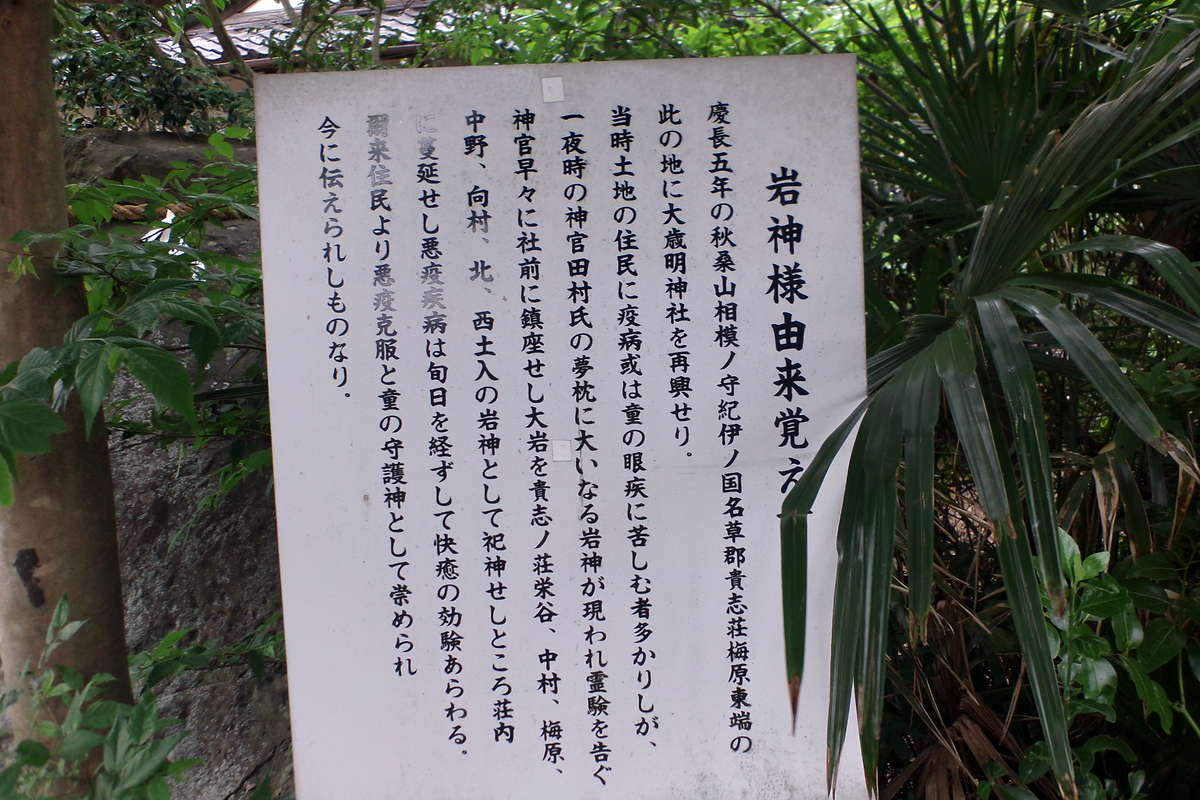 岩神様由来覚え
慶長五年の秋桑山相模ノ守紀伊ノ国名草郡貴志荘梅原東端の
此の地に大歳明神社を再興せり。
当時土地の住民に疫病或は童の眼疾に苦しむ者多かりしが、
一夜時の神官田村氏の夢枕に大いなる岩神が現われ霊験を告ぐ
神官早々に社前に鎮座せし大岩を貴志ノ荘栄谷、中村、梅原、
中野、向村、北、西土入の岩神として祀神せしところ荘内
に蔓延せし悪疫疾病は旬日を経ずして快癒の効験あらわる。
爾来住民より悪疫克服と童の守護神として崇められ
今に伝えられしものなり。